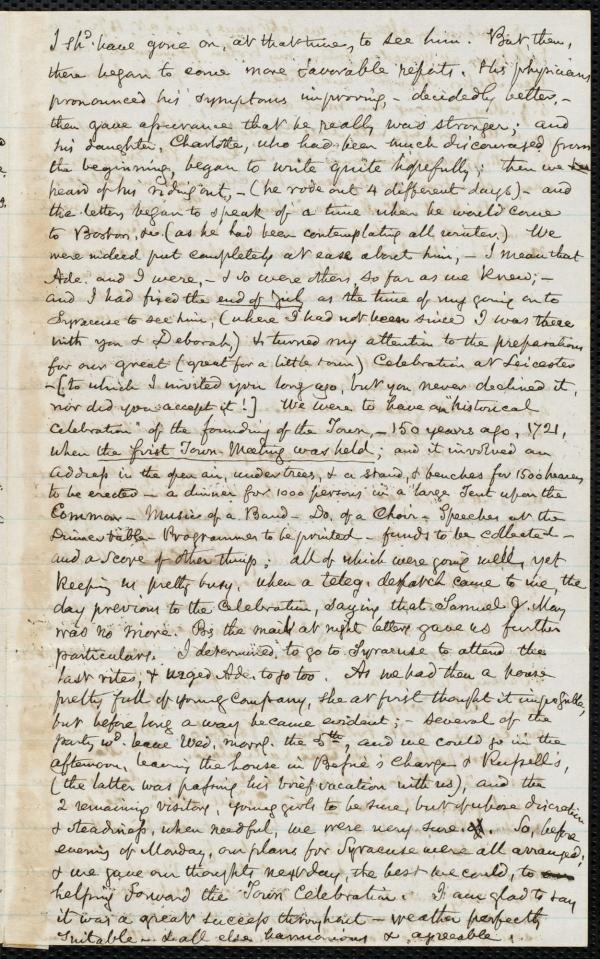 I shd. have gone on, at that time, to see him. But, then,
there began to come more favorable reports. His physicians
pronounced his symptoms improving, - decidedly better, -
then gave assurance that he really was stronger; and
his daughter, Charlotte, who had been much discouraged from
the beginning, began to write quite hopefully; then we
heard of his riding out, - (he rode out 4 different days) - and
the letters began to speak of a time when he would come
to Boston, &c (as he had been contemplating all winter.) We
were indeed put completely at ease about him, - I mean that
Ade. and I were, - & so were others, so far as we knew; -
and I had fixed the end of July as the time of my going on to
Syracuse to see him, (where I had not been since I was there
with you & Deborah,) & turned my attention to the preparations
for our great (great for a little town) Celebration at Leicester
- [to which I invited you long ago, but you never declined it,
nor did you accept it!] We were to have an "historical
celebration" of the founding of the Town, - 150 years ago, 1721,
when the first Town Meeting was held; and it involved an
address in the open air, under trees, & a stand, & benches for 1500 hearers
to be erected - a dinner for 1000 persons in a large Tent upon the
Common - Music of a Band - Do. of a Choir - Speeches at the
Dinner table - Programmes to be printed - funds to be collected -
and a score of other things; all of which were going well, yet
keeping us pretty busy, when a teleg. despatch came to me, the
day previous to the Celebration, saying that Samuel J. May
was no more. By the mail at night letters gave us further
particulars. I determined to go to Syracuse to attend the
last rites, & urged Ade. to go too. As we had then a house
pretty full of young company, she at first thought it impossible,
but before long a way became evident; - several of the
party wd. leave Wed. morng. the 5th, and we could go in the
afternoon, leaving the house in Bessie's charge & Russell's,
(the latter was passing his brief vacation with us), and the
2 remaining visitors, young girls to be sure, but of whose discretion
& steadiness, when needful, we were very sure. So, before
evening of Monday, our plans for Syracuse were all arranged;
& we gave our thoughts next day, the best we could, to
helping forward the Town Celebration. I am glad to say
it was a great success throughout - weather perfectly
suitable - & all else harmonious & agreeable.